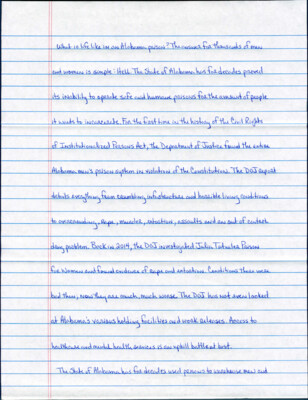 What is life like in an Alabama prison? The answer for thousands of men
and women is simple: Hell. The State of Alabama has for decades proved
its inability to operate safe and humane prisons for the amount of people
it wants to incarcerate. For the first time in the history of the Civil Rights
of Institutionalized Persons Act, the Department of Justice found the entire
Alabama men's prison system in violation of the Constitution. The DOJ report
details everything from crumbling infrastructure and horrible living conditions
to overcrowding, rape, murder, extortion, assaults and an out of control
drug problem. Back in 2014, the DOJ investigated Julia Tutwiler Prison
for Women and found evidence of rape and extortion. Conditions there were
bad then, now they are much, much worse. The DOJ has not even looked
at Alabama's various holding facilities and work releases. Access to
healthcare and mental health services is an uphill battle at best.
The State of Alabama has for decades used prisons to warehouse men and